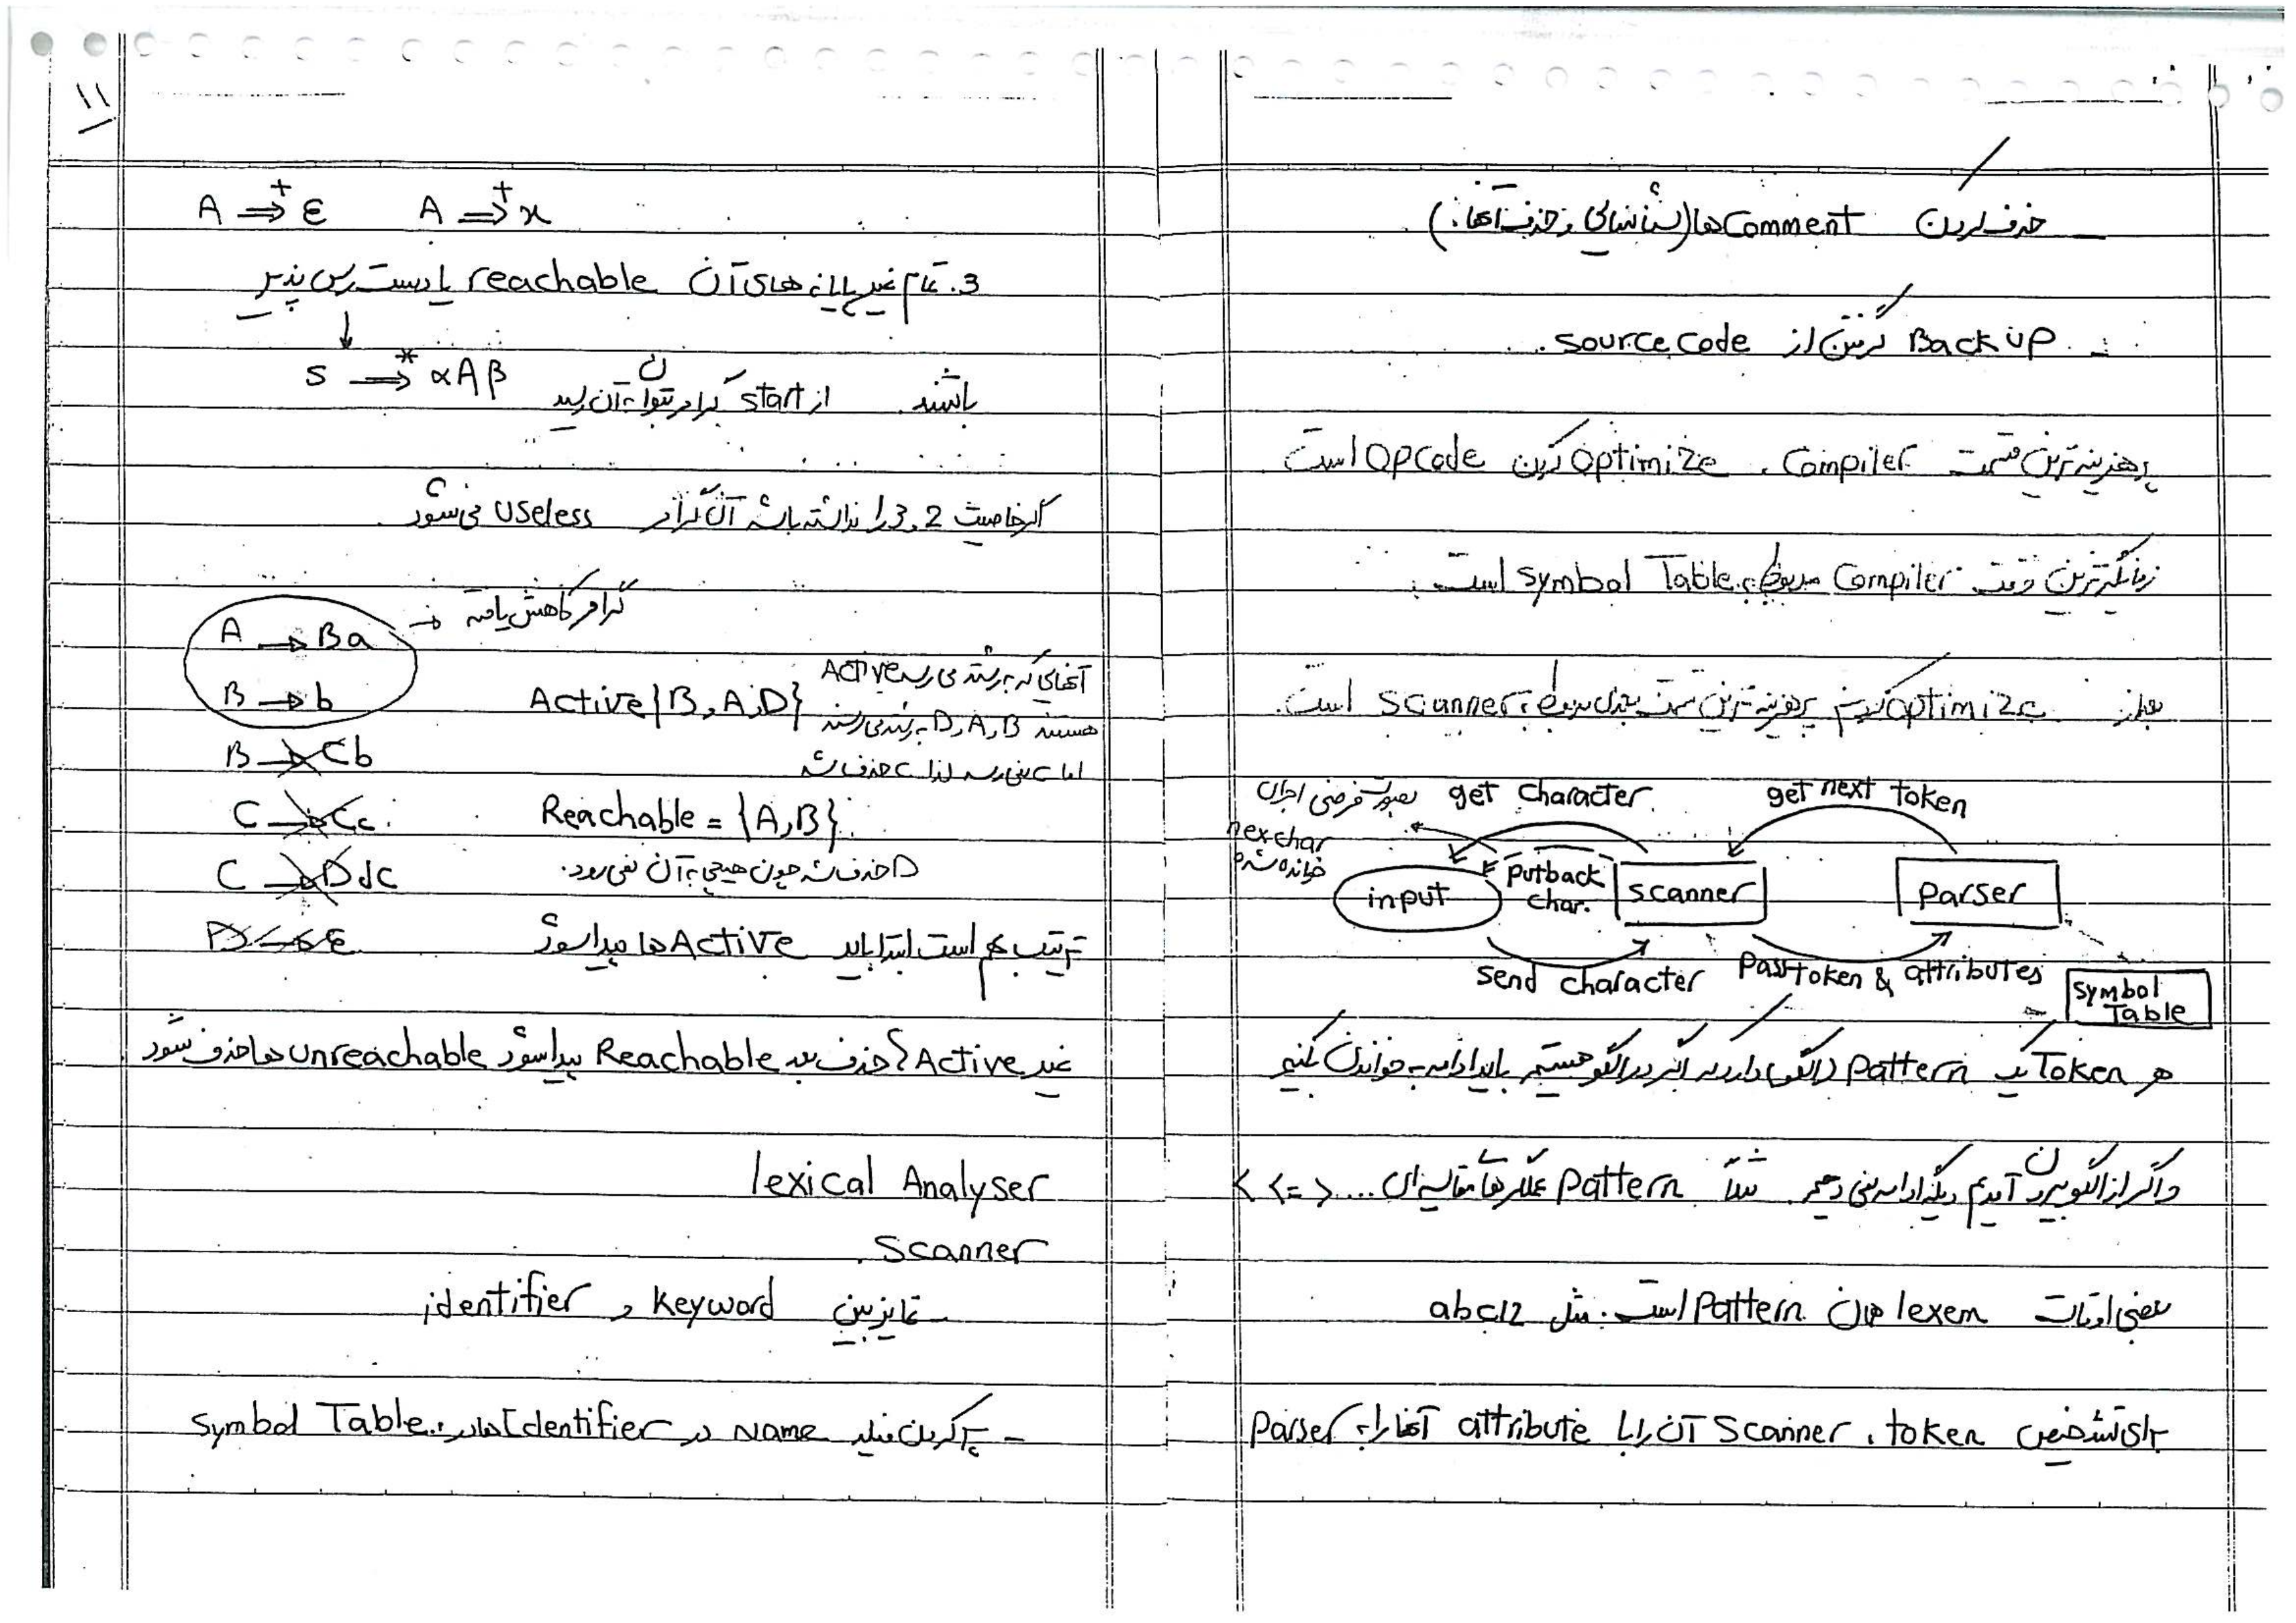 ۱۱
A ⇒+ ε    A ⇒+ x
3. تمام غیر پایانه های آن reachable یا دست رس پذیر
باشند. از start گرامر بتوان به آن رسید    S ⇒* αAβ
اگر خاصیت 3,2 را نداشته باشد آن گرامر useless می شود.
گرامر کاهش یافته
A → Ba
B → b
B → Cb
C → Cc
C → Ddc
D → ε
Active {B, A, D}
آنهایی که به رشته می رسد Active
هستند D, A, B به رشته می رسند
اما C نمی رسد لذا C حذف شد
Reachable = {A, B}
D حذف شد چون هیچی به آن نمی رود.
ترتیب مهم است ابتدا باید Active ها پیدا شود
غیر Active حذف بعد Reachable پیدا شود unreachable ها حذف شود
lexical Analyser
Scanner
- تمایز بین keyword و identifier
- پر کردن فیلد Name در Identifier ها در Symbol Table
- حذف کردن Comment ها (شناسائی و حذف آنها.)
- Back up گرفتن از source code.
پرهزینه ترین قسمت Compiler، Optimize کردن Opcode است
زمانگیرترین قسمت Compiler مربوط به symbol Table است.
بعد از optimize کردن پرهزینه ترین قسمت بعدی مربوط به scanner است.
بصورت فرضی اجرای
nexchar
خوانده شده
get character
get next token
input
Putback
char.
scanner
Parser
send character
Pass token & attributes
symbol
Table
هر Token یک Pattern (الگو) دارد که اگر در الگو هستیم باید ادامه به خواندن کنیم
و اگر از الگو بیرون آمدیم دیگر ادامه نمی دهیم. مثلاً Pattern عملگرهای مقایسه ای .... < => >
بعضی اوقات lexem همان Pattern است. مثل abc12
برای تشخیص token، Scanner آن را با attribute آنها را به Parser